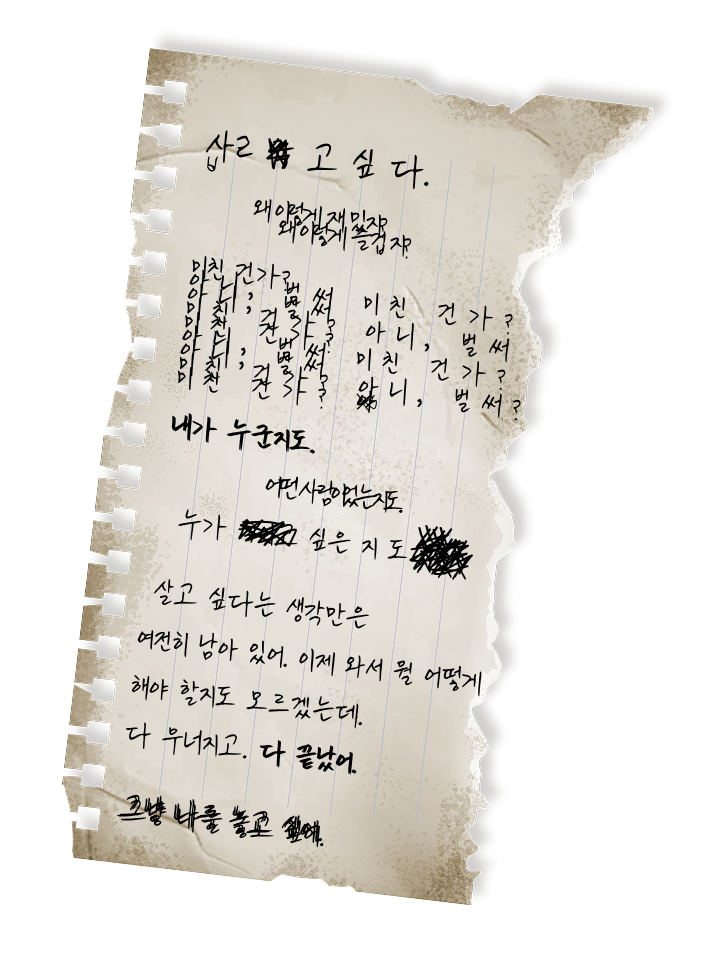 고 싶 다.
왜 이렇게 재밌지?
왜 이렇게 즐겁지?
미친 건가?
아니, 벌써 미친 건가?
미친 건가? 아니, 벌써
아니, 벌써 미친 건가?
미친 건가? 아니, 벌써?
내가 누군지도.
어떤 사람이었는지도.
누가 싶은지도
살고 싶다는 생각만은
여전히 남아 있어. 이제 와서 뭘 어떻게
해야 할지도 모르겠는데.
다 무너지고. 다 끝났어.
그냥 나를 놓고 싶어.